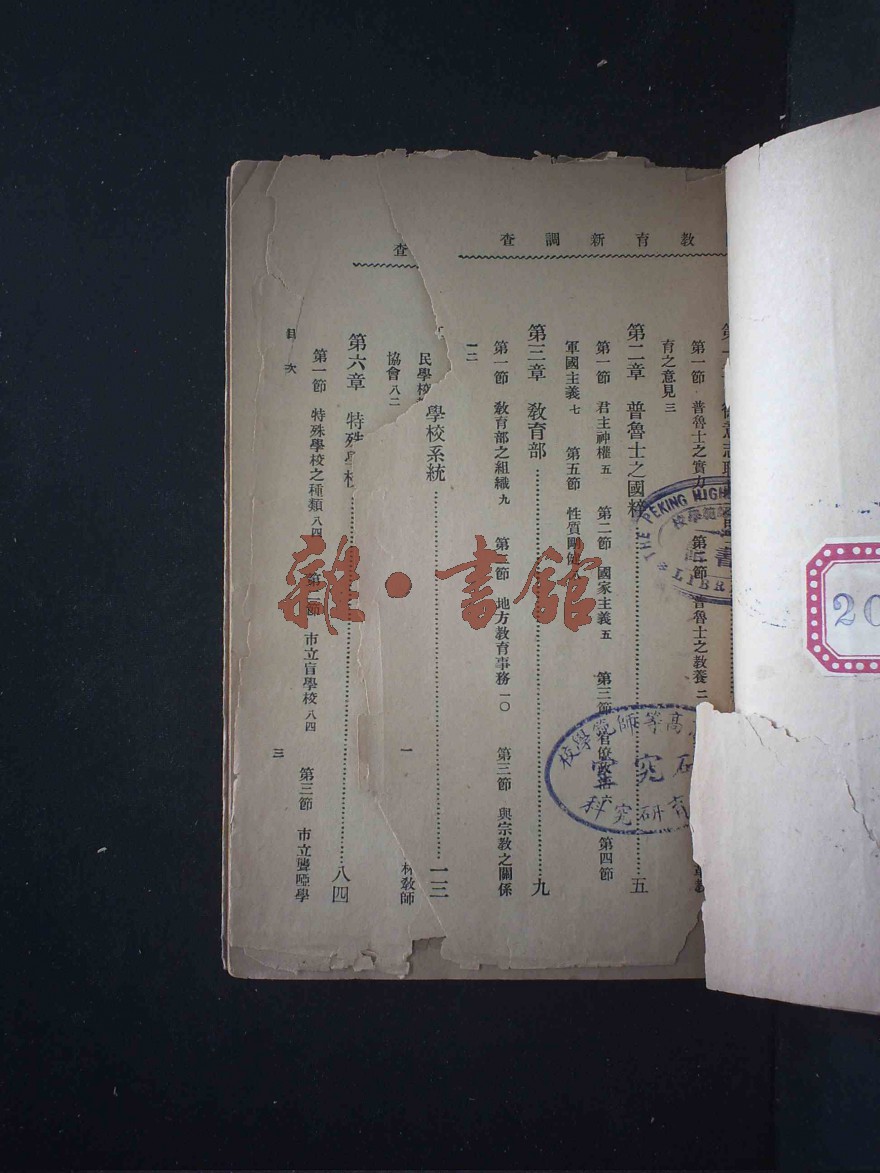 教育新調查
第一節 普魯士之實力 第二節 普魯士之教養 二
育之意見 三
第二章 普魯士之國粹 五
第一節 君主神權 五 第二節 國家主義 五 第三節 第四節
軍國主義 七 第五節 性質剛健
第三章 教育部 九
第一節 教育部之組織 九 第二節 地方教育事務 一〇 第三節 與宗教之關係
一二
學校系統 一三
民學校
協會 八二
教師
一
查
第六章 特殊 八四
第一節 特殊學校之種類 八四 第二節 市立盲學校 八四 第三節 市立聾啞學
目次
三
THE PEKING HIGH
LIBR
高等師範學校
育研究科
20
雜·書館